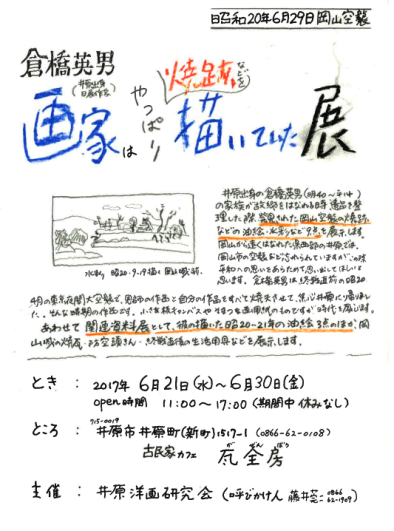 昭和20年6月29日岡山空襲
倉橋英男
(井原出身
日展作家)
画家はやっぱり焼跡などを描いていた展
水彩 昭20.9.19 描く 岡山城跡
井原出身の倉橋英男(明40〜平14)
の家族が故郷をはなれる時 遺品を整
理した際、発見された岡山空襲の焼跡
などの油絵・水彩など9点を展示します。
岡山から遠くはなれた県西部の井原では、
平和への思いをあらためて思い出してほしいと
思います。倉橋英男は終戦直前の昭20
4月の東京夜間大空襲で、恩師の作品と自分の作品をすべて焼失させて、
た。そんな時期の作品です。小さな板キャンバスや
あわせて関連資料展として、彼の描いた昭20〜21年の油絵3点のほか、岡
山城の焼瓦・防空頭きん・終戦直後の生活用具などを展示します。
とき : 2017年 6月21日(水)〜6月30日(金)
open時間 11:00〜17:00 (期間中 休みなし)
〒715-0019
ところ : 井原市井原町(新町)1517-1 (0866-62-0108)
古民家カフェ 瓦奎房
主催 : 井原洋画研究会 (呼びかけ人 藤井 0866 62-1909)